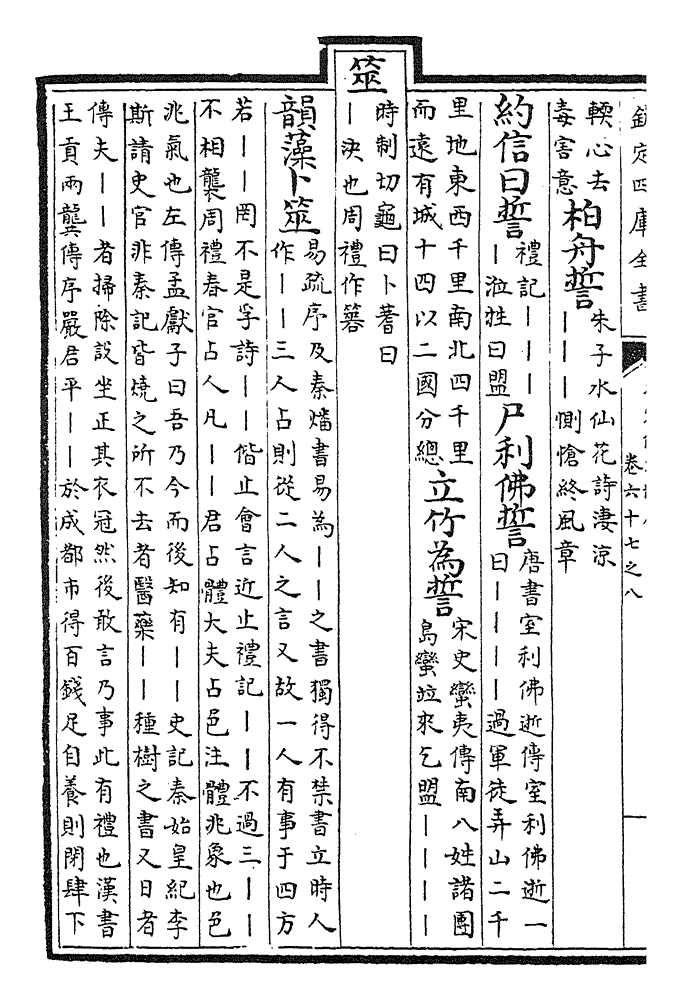 欽定四庫全書
卷六十七之八
輭心去
毒害意
柏舟誓
朱子水仙花詩凄涼
｜｜｜惻愴終風章
約信曰誓
禮記｜｜｜
｜涖牲曰盟
尸利佛誓
唐書室利佛逝傳室利佛逝一
曰｜｜｜｜過軍徒弄山二千
里地東西千里南北四千里
而遠有城十四以二國分總
立竹為誓
宋史蠻夷傳南八姓諸團
島蠻竝來乞盟｜｜｜｜
筮
時制切龜曰卜蓍曰
｜決也周禮作簭
韻藻卜筮
易疏序及秦燔書易為｜｜之書獨得不禁書立時人
作｜｜三人占則從二人之言又故一人有事于四方
若｜｜罔不是孚詩｜｜偕止會言近止禮記｜｜不過三｜｜
不相襲周禮春官占人凡｜｜君占體大夫占色注體兆象也色
兆氣也左傳孟獻子曰吾乃今而後知有｜｜史記秦始皇紀李
斯請史官非秦記皆燒之所不去者醫藥｜｜種樹之書又日者
傳夫｜｜者掃除設坐正其衣冠然後敢言乃事此有禮也漢書
王貢兩龔傳序嚴君平｜｜於成都市得百錢足自養則閉肆下